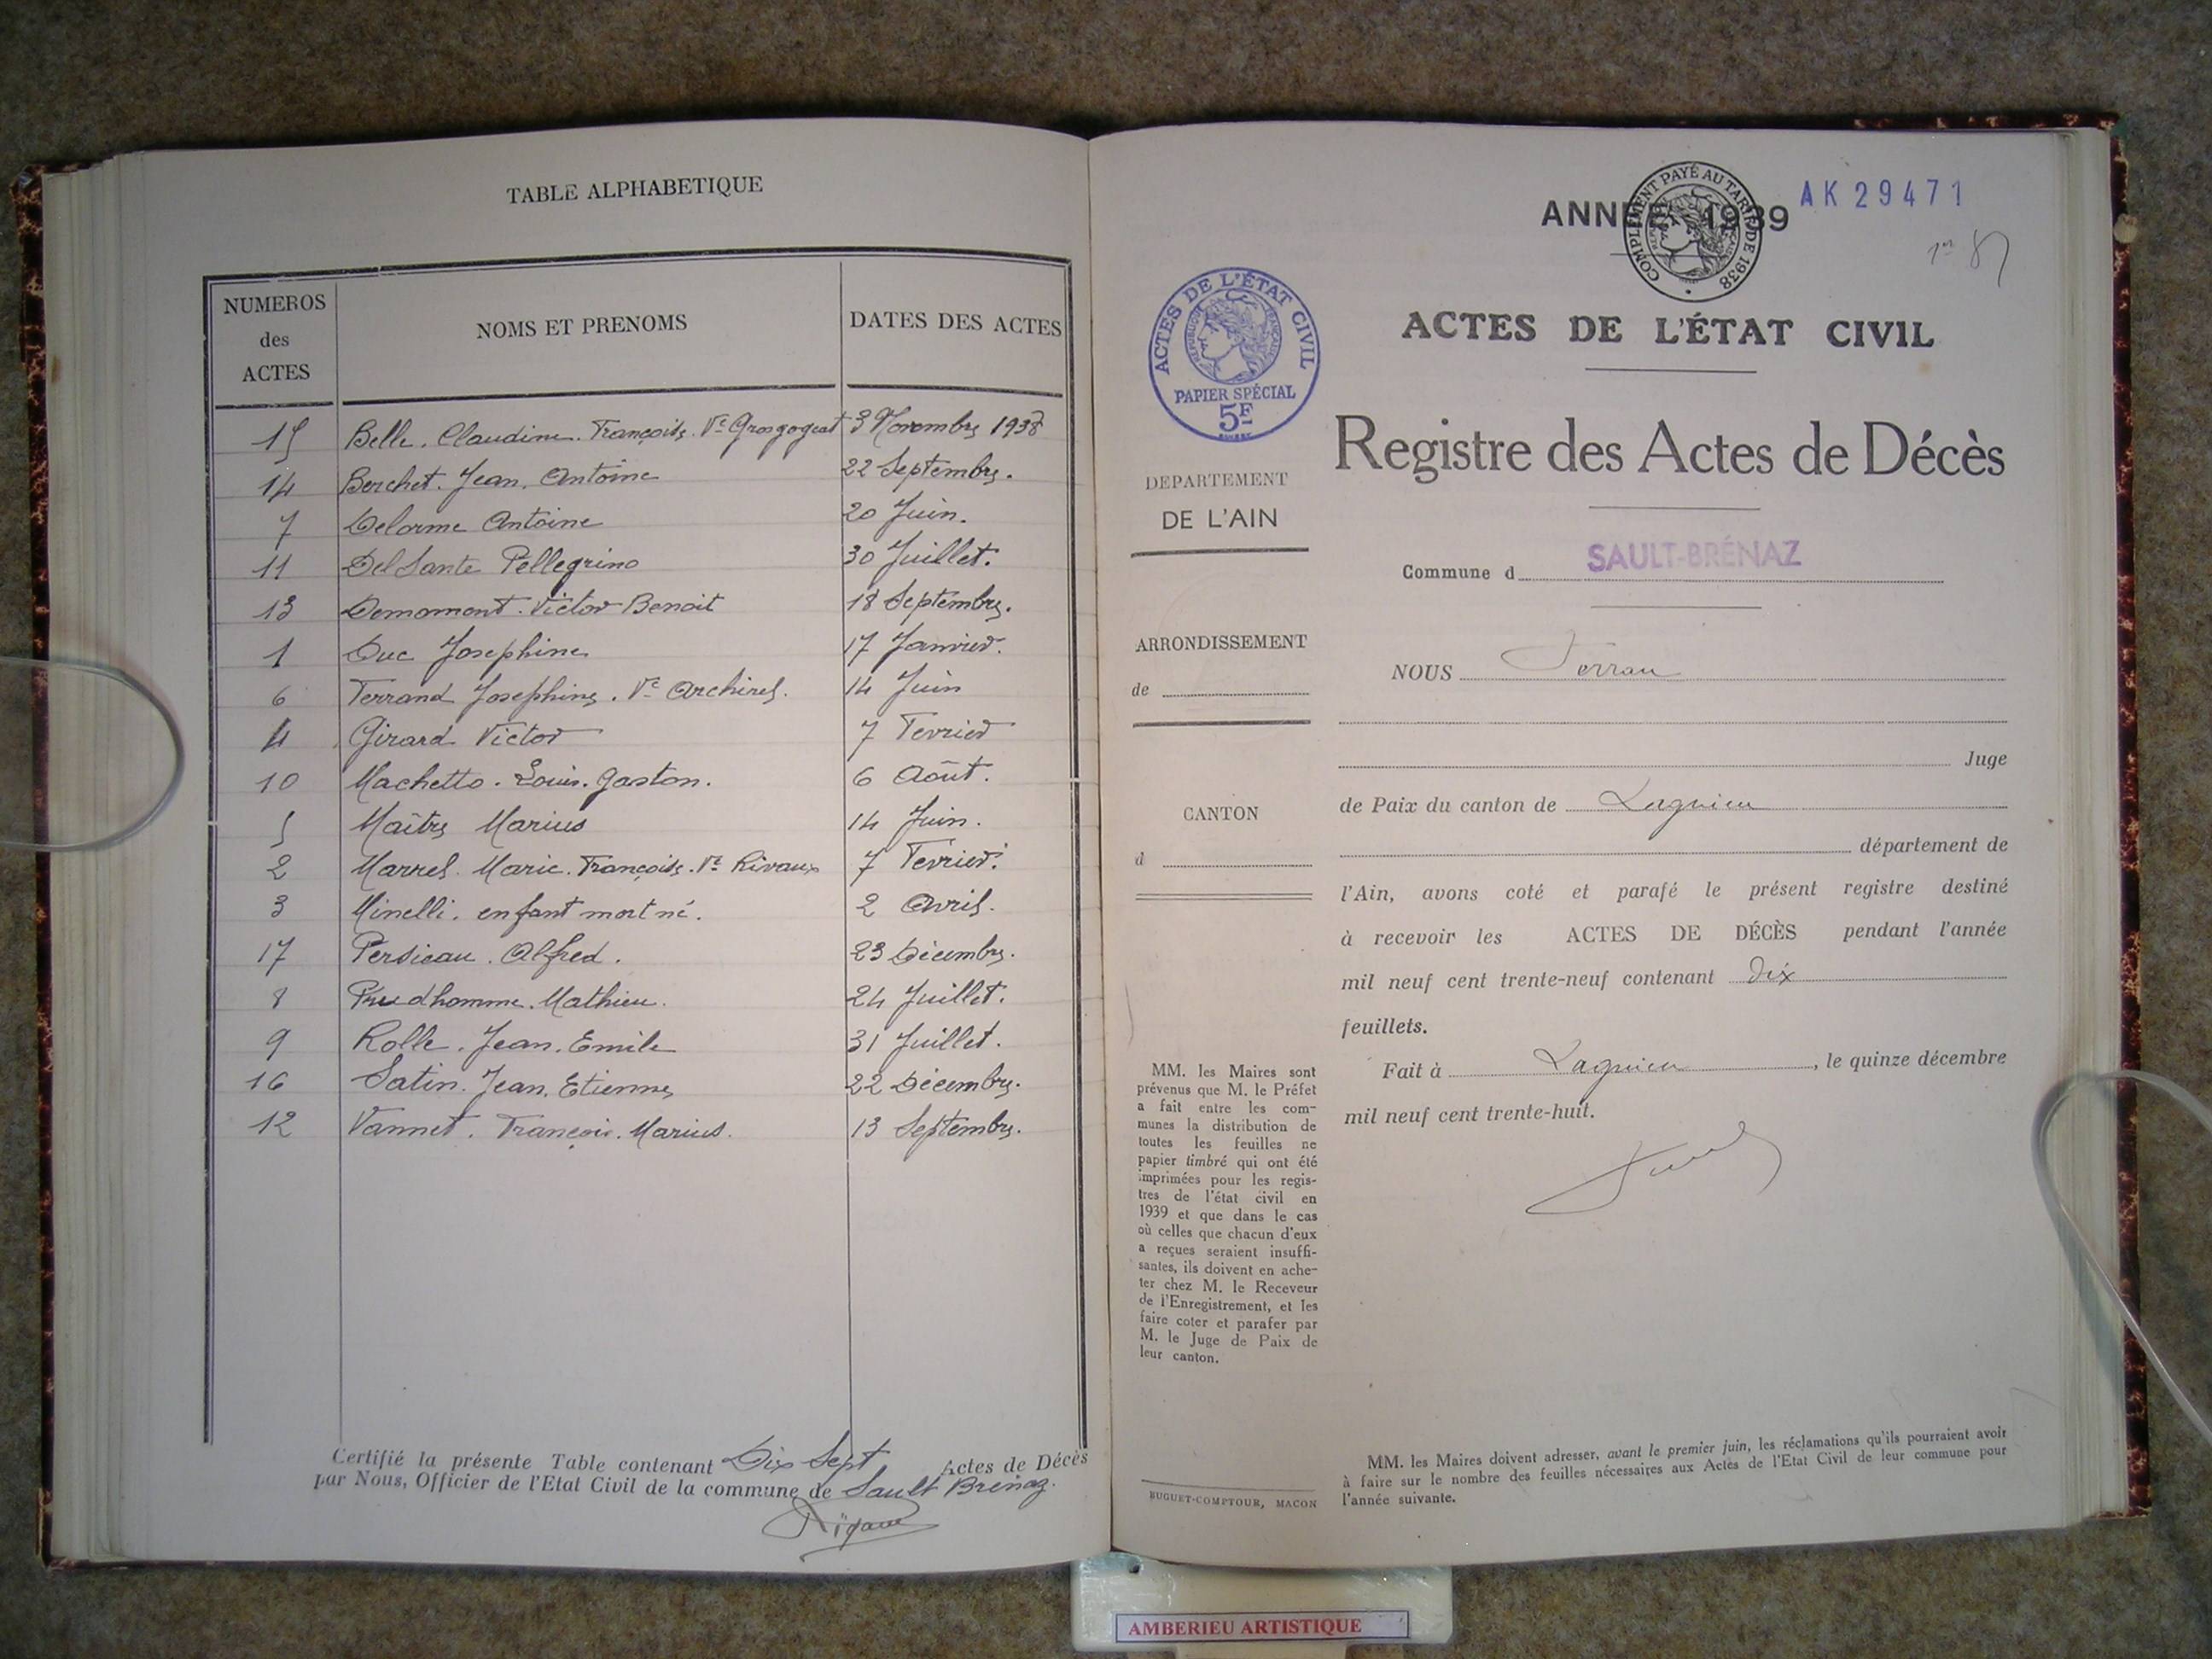 TABLE ALPHABETIQUE
NUMEROS des ACTES NOMS ET PRENOMS DATES DES ACTES
15 Belle. Claudine. Françoise. Vve Grosgogeat 3 Novembre 1938
14 Berchet. Jean. Antoine 22 Septembre.
7 Delorme Antoine 20 Juin.
11 Del Sante Pellegrino 30 Juillet.
13 Domomont. Victor Benoit 18 Septembre.
1 Duc Josephine 17 Janvier.
6 Ferrand Josephine. Vve 14 Juin
4 Girard Victor 7 Fevrier
10 Machetto. Louis. Gaston. 6 Août.
5 Maître Marius 14 Juin.
2 Marrel. Marie. Françoise. Vve Rivaux 7 Février.
3 Minelli. enfant mort né. 2 Avril.
17 Persicau. Alfred. 23 Décembre.
8 Prudhomme. Mathieu. 24 Juillet.
9 Rolle. Jean. Emile 31 Juillet.
16 Satin. Jean. Etienne 22 Décembre.
12 Vannet. François. Marius. 13 Septembre.
Certifié la présente Table contenant Dix Sept Actes de Décès
par Nous, Officier de l'Etat Civil de la commune de Sault Brénaz.
ANNÉE 1939
COMPLÉMENT PAYÉ AU TARIF DE 1938
AK 29471
ACTES DE L'ÉTAT CIVIL
RÉPUBLIQUE FRANÇAISE
PAPIER SPÉCIAL
5F
ACTES DE L'ÉTAT CIVIL
Registre des Actes de Décès
DEPARTEMENT
DE L'AIN
Commune d SAULT-BRÉNAZ
ARRONDISSEMENT
de
CANTON
d
MM. les Maires sont
prévenus que M. le Préfet
a fait entre les com-
munes la distribution de
toutes les feuilles ne
papier timbré qui ont été
imprimées pour les regis-
tres de l'état civil en
1939 et que dans le cas
où celles que chacun d'eux
a reçues seraient insuffi-
santes, ils doivent en ache-
ter chez M. le Receveur
de l'Enregistrement, et les
faire coter et parafer par
M. le Juge de Paix de
leur canton.
BUGUET-COMPTOUR, MACON
NOUS
Juge
de Paix du canton de Lagnieu
département de
l'Ain, avons coté et parafé le présent registre destiné
à recevoir les ACTES DE DÉCÈS pendant l'année
mil neuf cent trente-neuf contenant Dix
feuillets.
Fait à Lagnieu, le quinze décembre
mil neuf cent trente-huit.
MM. les Maires doivent adresser, avant le premier juin, les réclamations qu'ils pourraient avoir
à faire sur le nombre des feuilles nécessaires aux Actes de l'Etat Civil de leur commune pour
l'année suivante.
AMBERIEU ARTISTIQUE